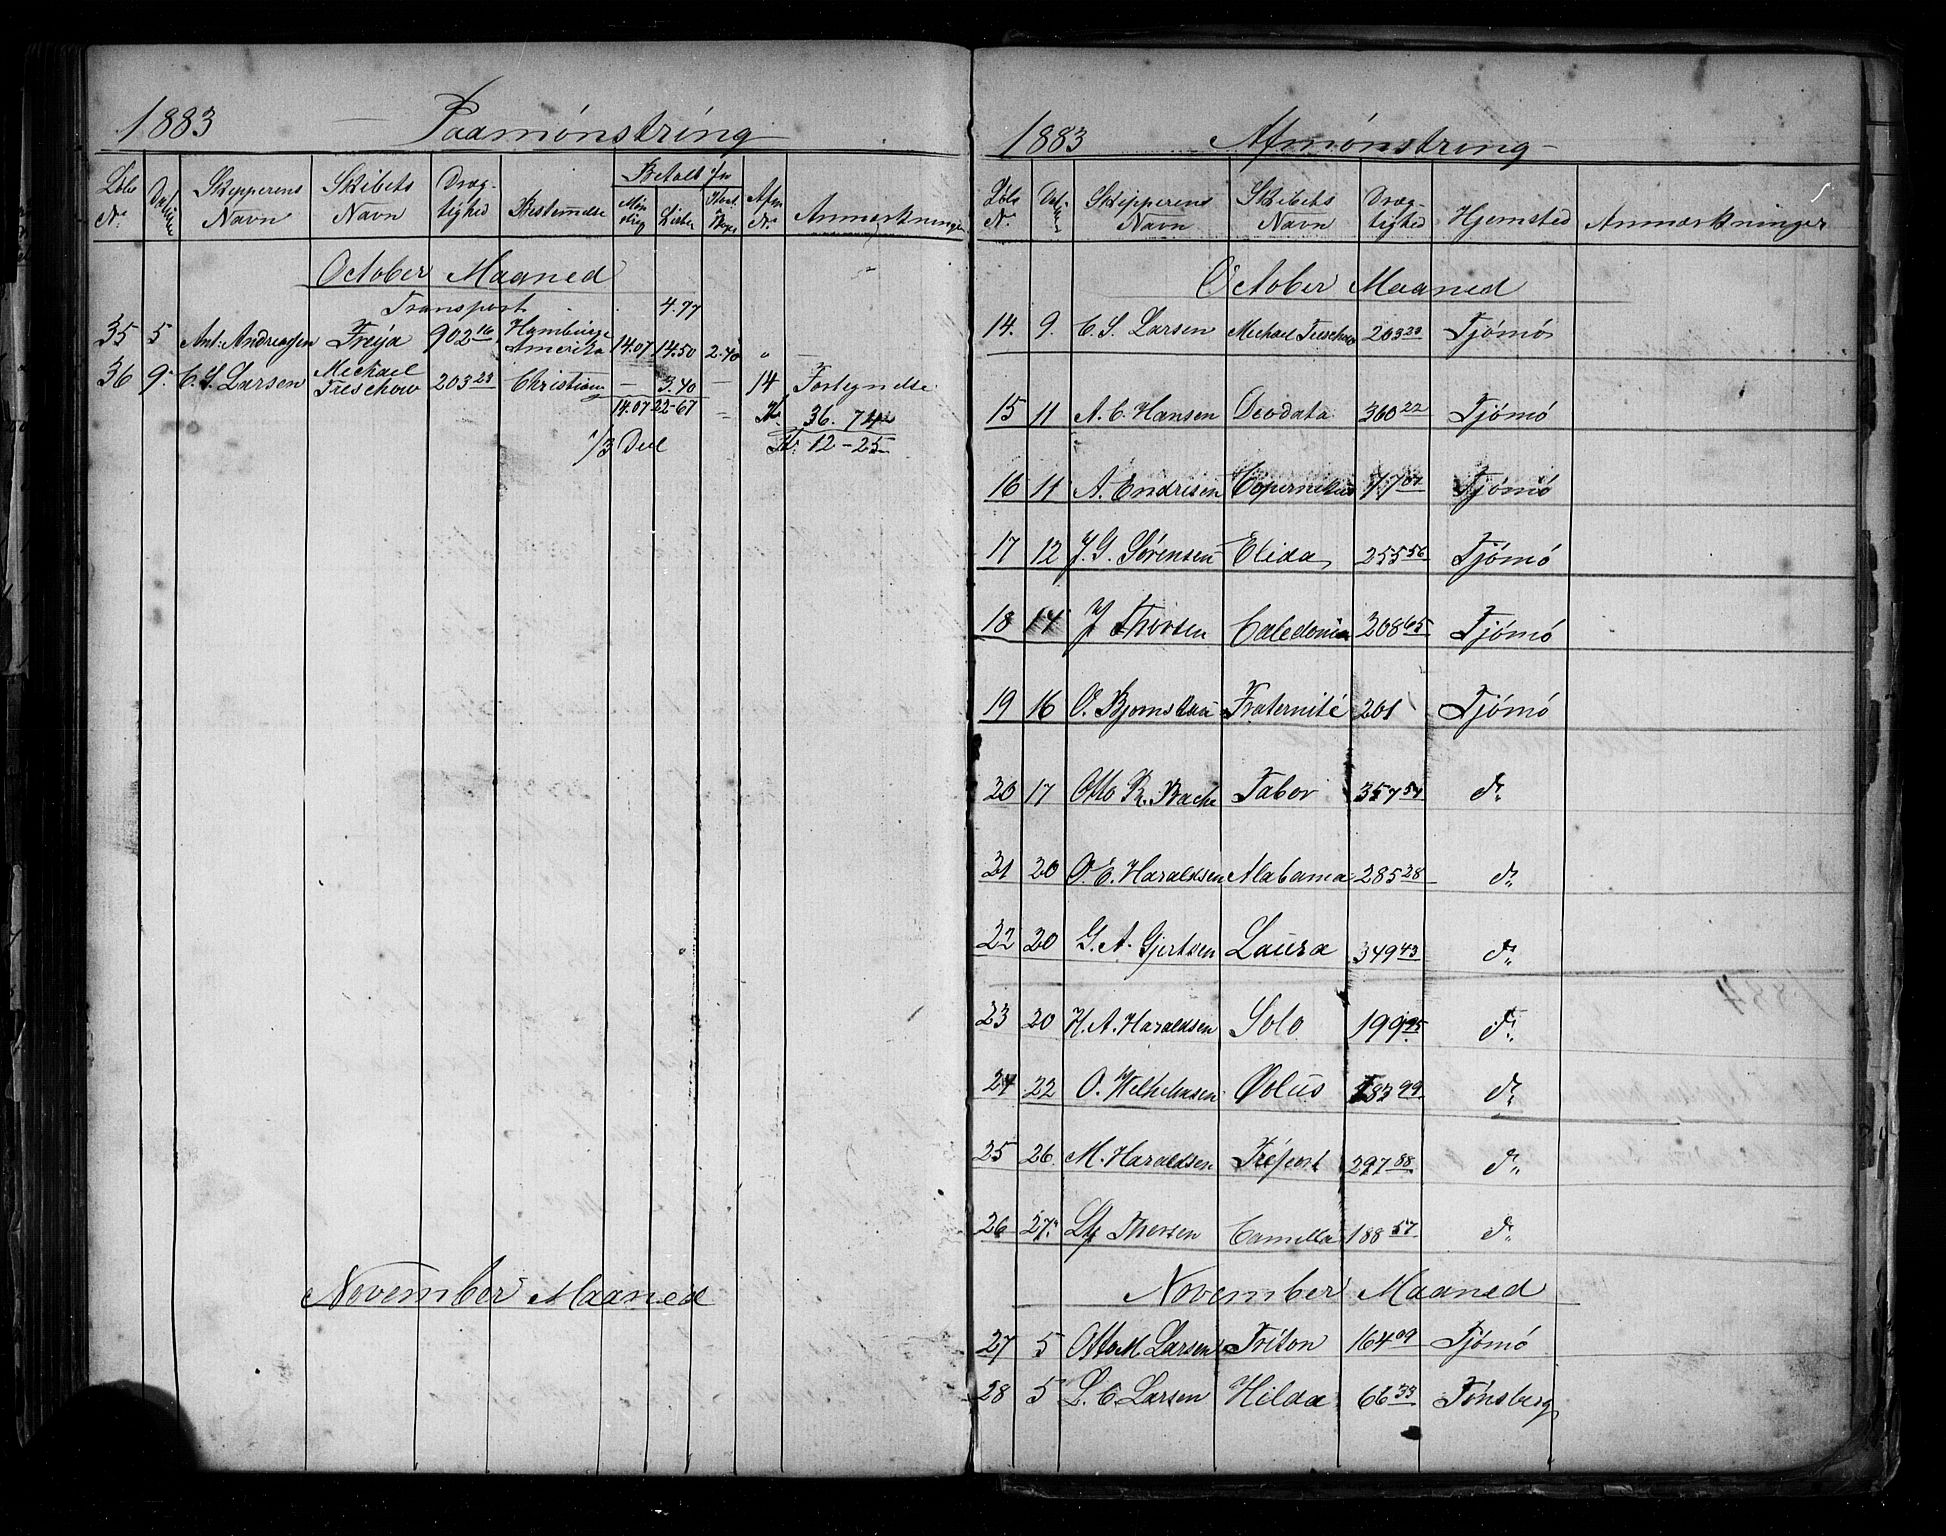 1883 Paamønstring
Løbe Datum Skipperens Skibets Dræg- Betalt for Afm.
Nr. Navn Navn tighed Bestemelse Møn string Lister Anmærkninger
October Maaned
Transport 4.77
35 5 Ant. Andreasen Freÿa 902 16 Hamburg Amerika 14.07 14.50 2.40 "
36 9 C. S. Larsen Michael Treschow 203 23 Christiania — 3.40 — 14
14.07 22-67 — Kr. 36.74
1/3 Deel Kr. 12-25
November Maaned
1883 Afmønstring
Løbe Skipperens Skibets Dræg-
Nr. Navn Navn tighed Hjemsted Anmærkninger
October Maaned
14. 9. C. S. Larsen Michael Treschow 203 23 Tjömö
15 11 A. C. Hansen Deodata 360 22 Tjömö
16 11 A. Endresen Copernikus Tjömö
17 12 J. G. Sörensen Elida 255 56 Tjömö
18 14 J Thorsen Caledonia 208 65 Tjömö
19 16 O. Fraternité 201 Tjömö
20 17 Otto R. Bache Tabor 357 54 do
21 20 O. E. Haraldsen Alabama 285 28 do
22 20 G. A. Gjertsen Laura 349 43 do
23 20 H. A. Haraldsen Solo 199 95 do
24 22 O. Wilhelmsen Æolus 99 do
25 26 M. Haraldsen 297 88 do
26 27 Thorsen Camilla 188 57 do
November Maaned
27 5 Otto M Larsen Triton 164 09 Tjömö
28 5 L. C. Larsen Hilda 66 33 Tönsberg